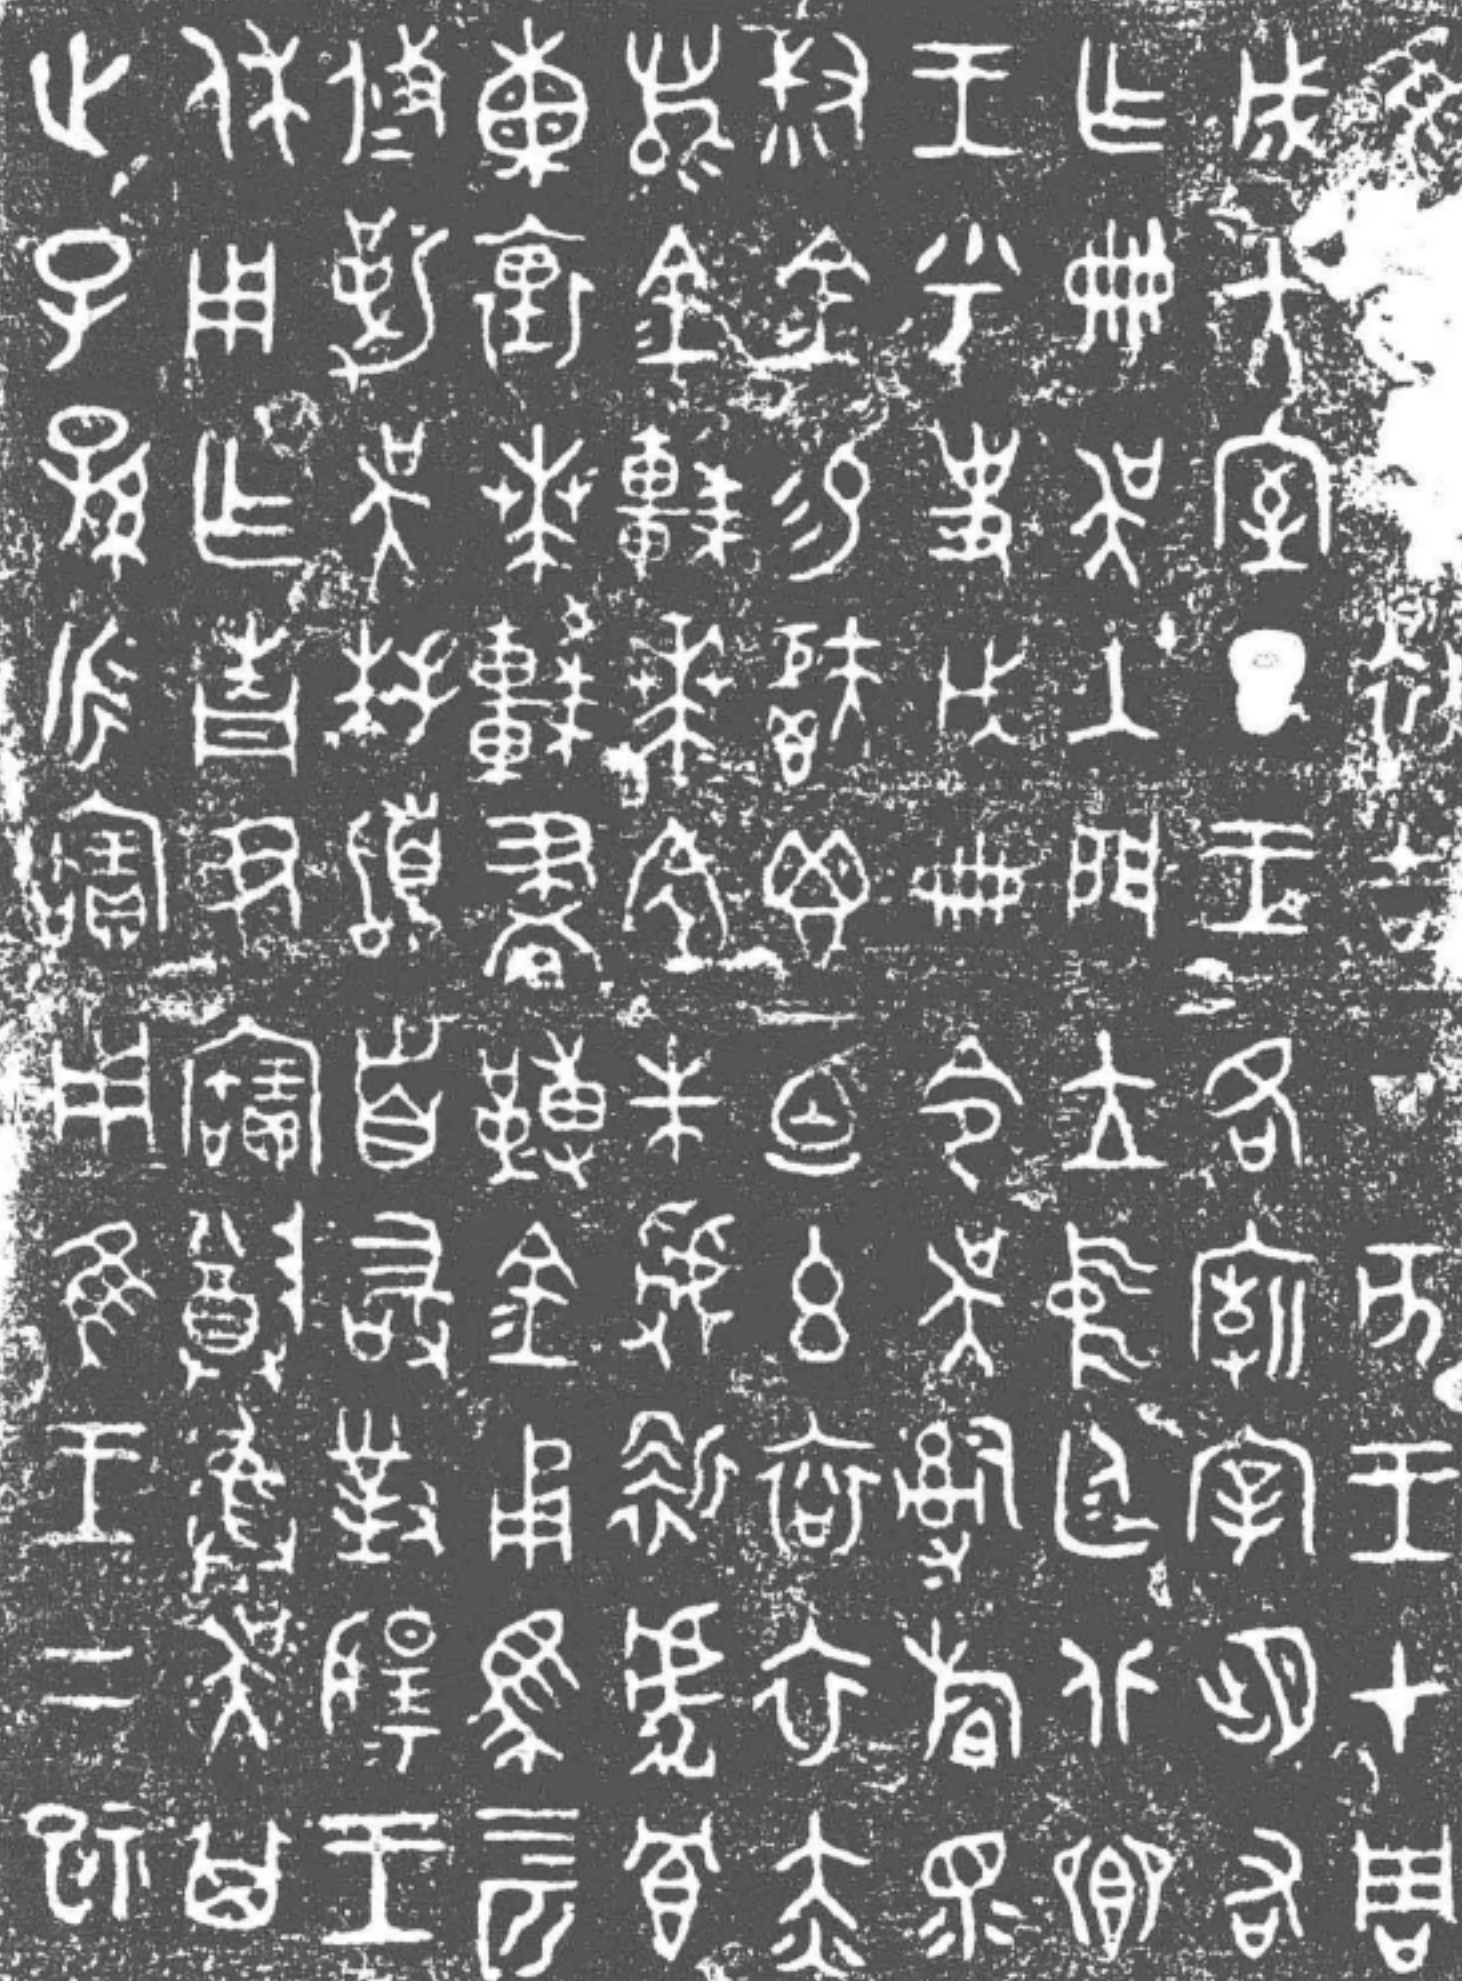 隹二月初吉丁亥王才周
成大室旦王各廟宰朏右
乍冊吳入門立中廷北鄉
王乎史戊冊令吳𤔲旃眔
叔金易秬鬯一卣玄袞衣赤
舄金車𠦪㒼朱虢靳虎冟
熏裏𠦪較畫轉金甬馬四匹
攸勒吳拜稽首敢對揚王
休用乍青尹寶尊彝吳其
世子孫永寶用隹王二祀